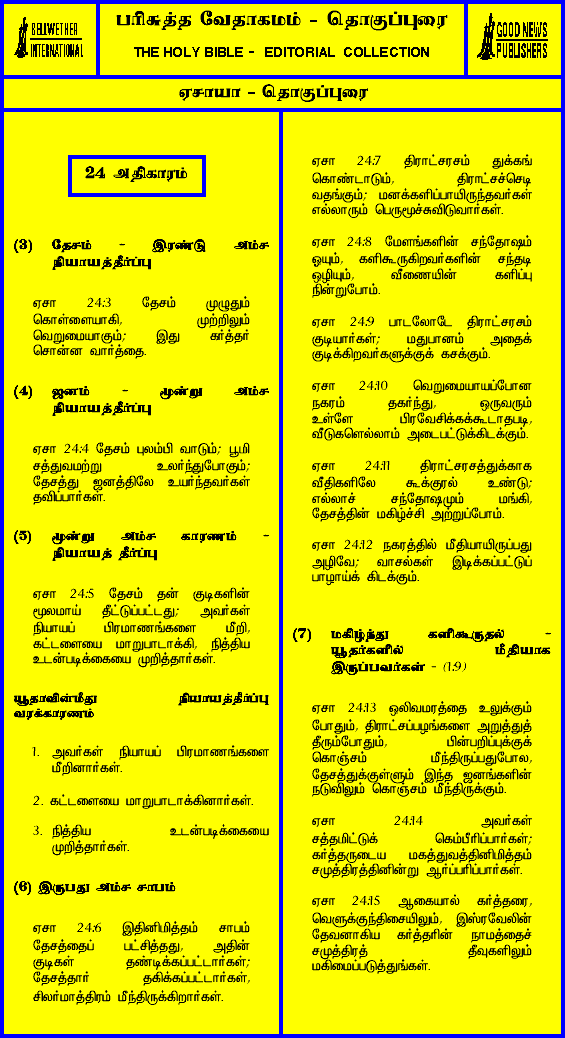 BELLWETHER
INTERNATIONAL
பரிசுத்த வேதாகமம் - தொகுப்புரை
THE HOLY BIBLE - EDITORIAL COLLECTION
GOOD NEWS
PUBLISHERS
ஏசாயா - தொகுப்புரை
24 அதிகாரம்
(3) தேசம் - இரண்டு அம்ச
நியாயத்தீர்ப்பு
ஏசா 24:3 தேசம் முழுதும்
கொள்ளையாகி, முற்றிலும்
வெறுமையாகும்; இது கர்த்தர்
சொன்ன வார்த்தை.
(4) ஜனம் - மூன்று அம்ச
நியாயத்தீர்ப்பு
ஏசா 24:4 தேசம் புலம்பி வாடும்; பூமி
சத்துவமற்று உலர்ந்துபோகும்;
தேசத்து ஜனத்திலே உயர்ந்தவர்கள்
தவிப்பார்கள்.
(5) மூன்று அம்ச காரணம் -
நியாயத் தீர்ப்பு
ஏசா 24:5 தேசம் தன் குடிகளின்
மூலமாய் தீட்டுப்பட்டது; அவர்கள்
நியாயப் பிரமாணங்களை மீறி,
கட்டளையை மாறுபாடாக்கி, நித்திய
உடன்படிக்கையை முறித்தார்கள்.
யூதாவின்மீது நியாயத்தீர்ப்பு
வரக்காரணம்
1. அவர்கள் நியாயப் பிரமாணங்களை
மீறினார்கள்.
2. கட்டளையை மாறுபாடாக்கினார்கள்.
3. நித்திய உடன்படிக்கையை
முறித்தார்கள்.
(6) இருபது அம்ச சாபம்
ஏசா 24:6 இதினிமித்தம் சாபம்
தேசத்தைப் பட்சித்தது, அதின்
குடிகள் தண்டிக்கப்பட்டார்கள்;
தேசத்தார் தகிக்கப்பட்டார்கள்,
சிலர்மாத்திரம் மீந்திருக்கிறார்கள்.
ஏசா 24:7 திராட்சரசம் துக்கங்
கொண்டாடும், திராட்சச்செடி
வதங்கும்; மனக்களிப்பாயிருந்தவர்கள்
எல்லாரும் பெருமூச்சுவிடுவார்கள்.
ஏசா 24:8 மேளங்களின் சந்தோஷம்
ஓயும், களிகூருகிறவர்களின் சந்தடி
ஒழியும், வீணையின் களிப்பு
நின்றுபோம்.
ஏசா 24:9 பாடலோடே திராட்சரசம்
குடியார்கள்; மதுபானம் அதைக்
குடிக்கிறவர்களுக்குக் கசக்கும்.
ஏசா 24:10 வெறுமையாய்ப்போன
நகரம் தகர்ந்து, ஒருவரும்
உள்ளே பிரவேசிக்கக்கூடாதபடி,
வீடுகளெல்லாம் அடைபட்டுக்கிடக்கும்.
ஏசா 24:11 திராட்சரசத்துக்காக
வீதிகளிலே கூக்குரல் உண்டு;
எல்லாச் சந்தோஷமும் மங்கி,
தேசத்தின் மகிழ்ச்சி அற்றுப்போம்.
ஏசா 24:12 நகரத்தில் மீதியாயிருப்பது
அழிவே; வாசல்கள் இடிக்கப்பட்டுப்
பாழாய்க் கிடக்கும்.
(7) மகிழ்ந்து களிகூருதல் -
யூதர்களில் மீதியாக
இருப்பவர்கள் - (1:9)
ஏசா 24:13 ஒலிவமரத்தை உலுக்கும்
போதும், திராட்சப்பழங்களை அறுத்துத்
தீரும்போதும், பின்பறிப்புக்குக்
கொஞ்சம் மீந்திருப்பதுபோல,
தேசத்துக்குள்ளும் இந்த ஜனங்களின்
நடுவிலும் கொஞ்சம் மீந்திருக்கும்.
ஏசா 24:14 அவர்கள்
சத்தமிட்டுக் கெம்பீரிப்பார்கள்;
கர்த்தருடைய மகத்துவத்தினிமித்தம்
சமுத்திரத்தினின்று ஆர்ப்பரிப்பார்கள்.
ஏசா 24:15 ஆகையால் கர்த்தரை,
வெளுக்குந்திசையிலும், இஸ்ரவேலின்
தேவனாகிய கர்த்தரின் நாமத்தைச்
சமுத்திரத் தீவுகளிலும்
மகிமைப்படுத்துங்கள்.